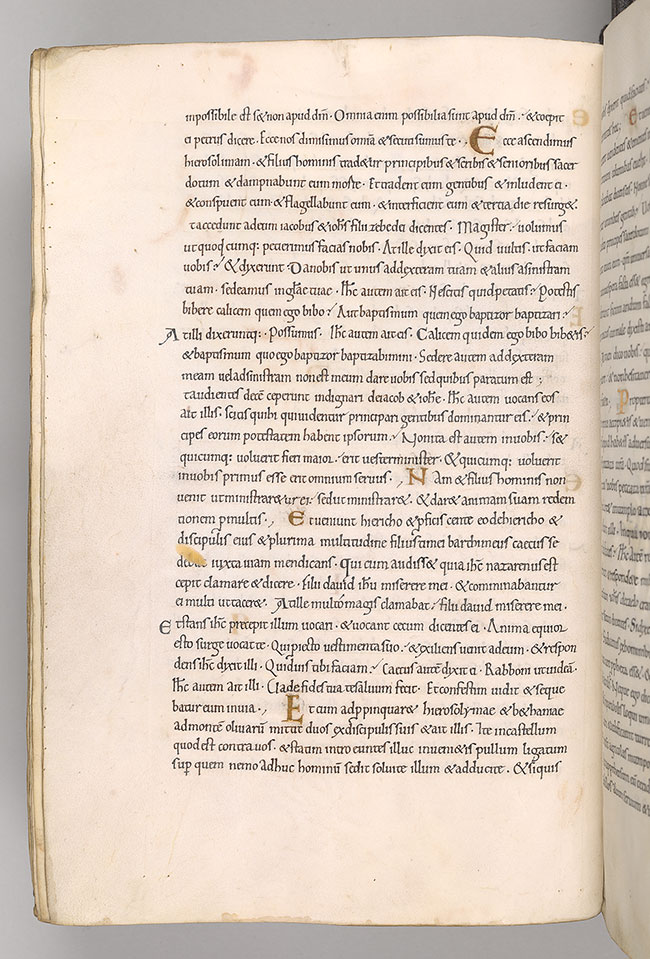 inpossibile est s& non apud dm̄ · Omnia enim possibilia sunt apud dm̄ · & coepit
ei petrus dicere · Ecce nos dimisimus omnia & secuti sumus te · Ecce ascendimus
hierosolimam · & filius hominis trad&ur principibus & scribis & senioribus sacer
dotum & dampnabunt eum morte · Et tradent eum gentibus & inludent ei ·
& conspuent eum & flagellabunt eum · & interficient eum & tercia die resurg& ·
t accedunt ad eum iacobus & iohs filii zebedei dicentes · Magister volumus
ut quodcumq; petierimus facias nobis · At ille dyxit eis · Quid vultis ut faciam
uobis · & dyxerunt Da nobis ut unus ad dexteram tuam & alius a sinistram
tuam · sedeamus in gła tuae · Ihc autem ait eis · Nescitis quid petatis · Potestis
bibere calicem quem ego bibo · Aut baptismum quem ego baptizor baptizari ·
At illi dixerunt ei · Possumus · Ihc autem ait eis · Calicem quidem ego bibo bib&is ·
& baptismum quo ego baptizor baptizabimini · Sedere autem ad dyxteram
meam vel ad sinistram non est meum dare uobis sed quibus paratum est ;
t audientes decē ceperunt indignari de iacob & iohē · Ihc autem uocans eos
ait illis · scitis qui hi qui uidentur principari gentibus dominantur eis · & prin
cipes eorum potestatem habent ipsorum · Non ita est autem in uobis · s&
quicumq; voluerit fieri maior · erit vester minister · & quicumq; voluerit
in uobis primus esse erit omnium seruus · Nam & filius hominis non
venit ut ministrar&ur ei · sed ut ministrar& · & dar& animam suam redem
tionem p multis · Et veniunt hiericho & pficiscente eo de hiericho &
discipulis eius & plurima multitudine filius timei bartimeus caecus se
debat iuxta viam mendicans · Qui cum audiss& quia ihc nazarenus est
cepit clamare & dicere · fili david ihū miserere mei · & comminabantur
ei multi ut tacer& · At ille multo magis clamabat · fili david miserere mei ·
Et stans ihc precepit illum vocari · & vocant cecum dicentes ei · Anima equior
esto surge vocat te · Qui piecto vestimento suo · & exiliens venit ad eum · & respon
dens ihc dyxit illi · Quid vis tibi faciam · Caecus autē dyxit ei · Rabboni ut videā ·
Ihc autem ait illi · Uade fides tua te saluum fecit · Et confestim uidit & seque
batur eum in uia · Et cum adppinquar& hierosolymae & b&haniae
ad montē olivarū mittit duos ex discipulis suis & ait illis · Ite in castellum
quod est contra uos · & statim intro euntes illuc inueni&is pullum ligatum
sup quem nemo adhuc hominū sedit solvite illum & adducite · & si quis